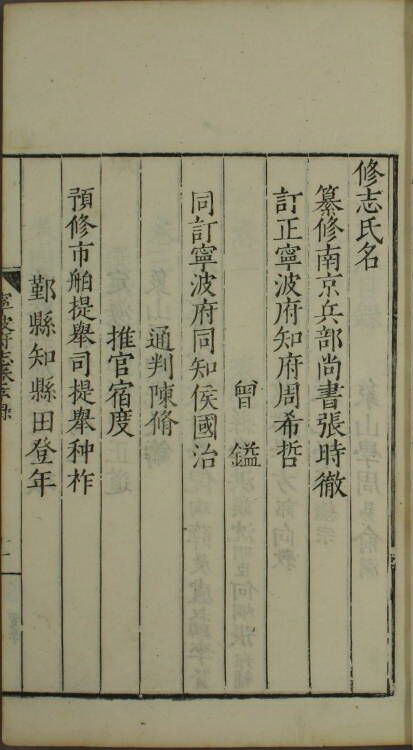 修志氏名
纂修南京兵部尚書張時徹
訂正寧波府知府周希哲
曾鎰
同訂寧波府同知侯國治
通判陳脩
推官宿度
預修市舶提舉司提舉种柞
鄞縣知縣田登年